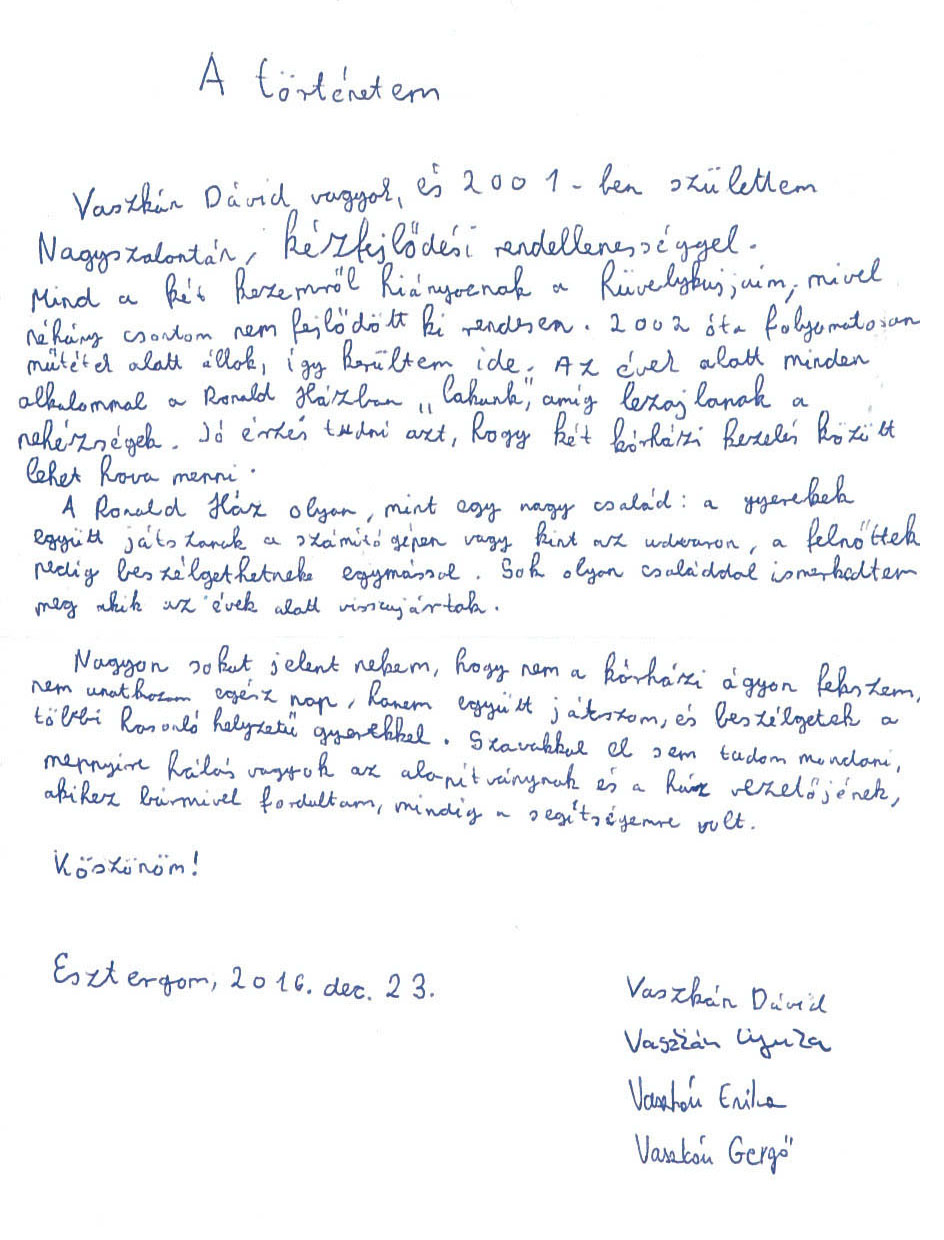 A történetem
Vaszkán Dávid vagyok, és 2001-ben születtem
Nagyszalontán, kézfejlődési rendellenességgel.
Mind a két kezemről hiányoznak a hüvelykujjaim, mivel
néhány csontom nem fejlődött ki rendesen. 2002 óta folyamatosan
műtétek alatt állok, így kerültem ide. Az évek alatt minden
alkalommal a Ronald Házban „lakunk", amíg lezajlanak a
nehézségek. Jó érzés tudni azt, hogy két kórházi kezelés között
lehet hova menni.
A Ronald Ház olyan, mint egy nagy család: a gyerekek
együtt játszanak a számítógépen vagy kint az udvaron, a felnőttek
pedig beszélgethetneke egymással. Sok olyan családdal ismerkedtem
meg akik az évek alatt visszajártak.
Nagyon sokat jelent nekem, hogy nem a kórházi ágyon fekszem,
nem unatkozom egész nap, hanem együtt játszom, és beszélgetek a
többi hasonló helyzetű gyerekkel. Szavakkal el sem tudom mondani,
mennyire hálás vagyok az alapítványnak és a ház vezetőjének,
akihez bármivel fordultam, mindig a segítségemre volt.
Köszönöm!
Esztergom, 2016. dec. 23.
Vaszkán Dávid
Vaszkán
Vaszkán Erika
Vaszkán Gergő